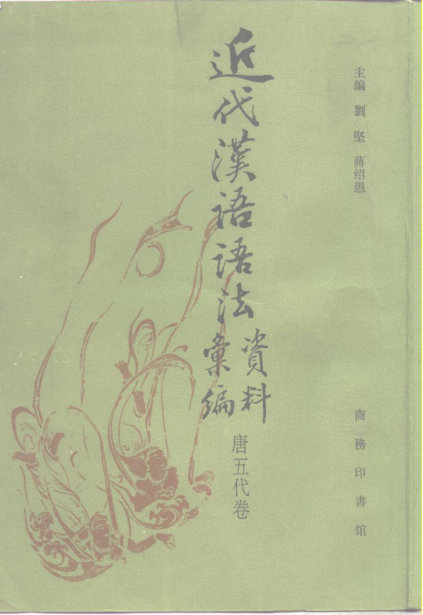 主编 劉堅 蔣绍愚
近代漢語語法
資料
彙編
唐五代卷
商務印書館